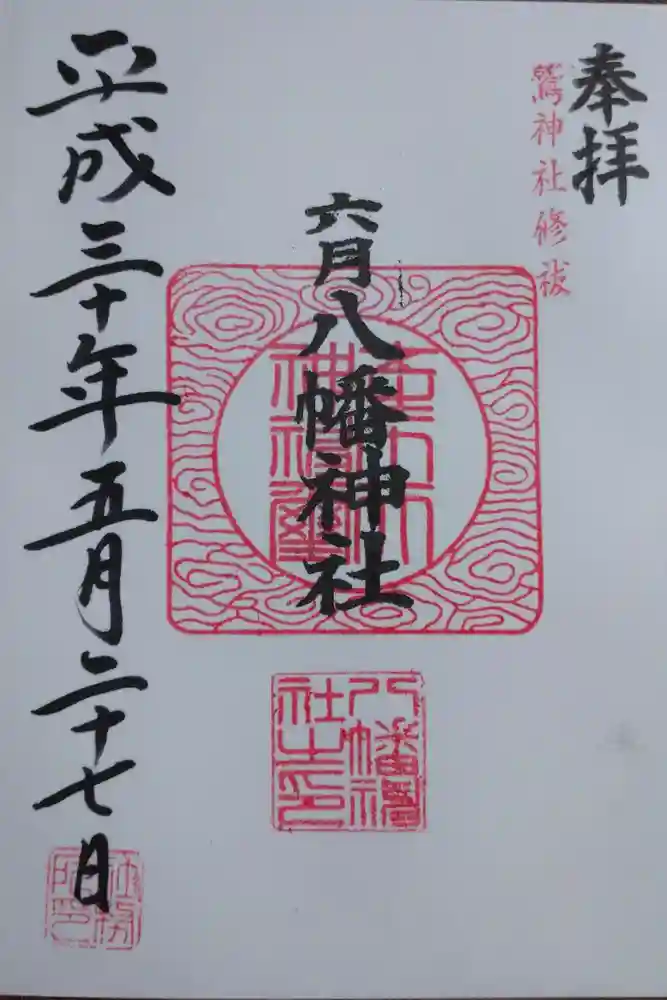 奉拝
鷲神社修祓
六月八幡神社
八幡神社之印
平成三十年五月二十七日
社務所印